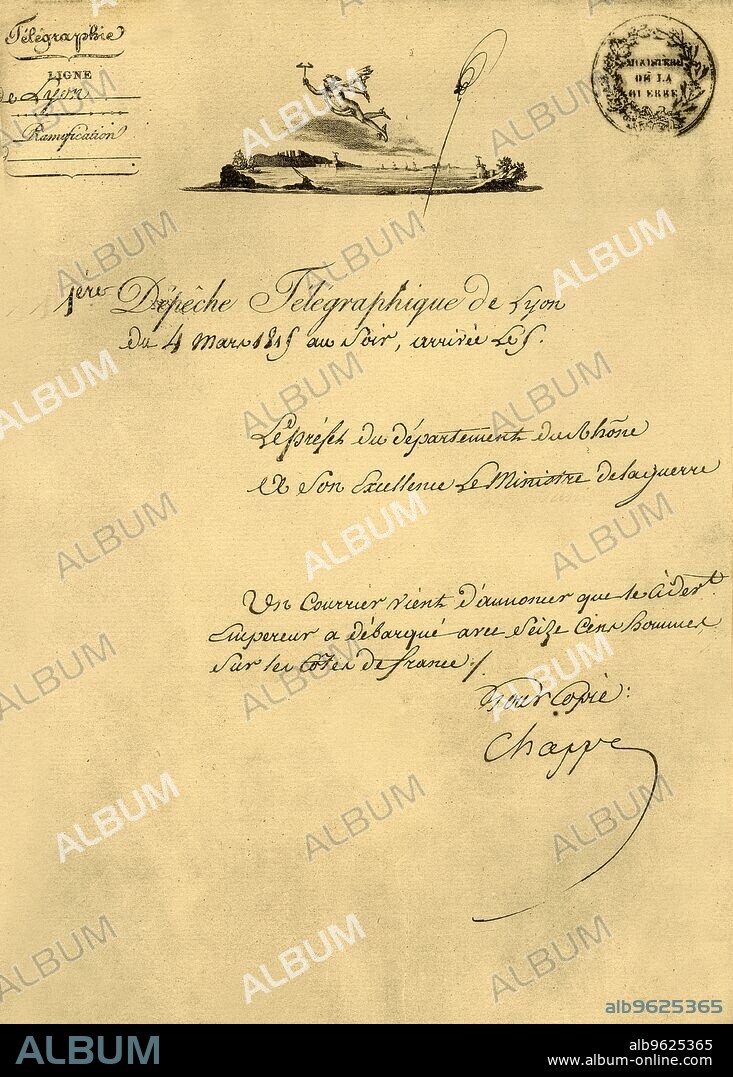 Télégraphie
LIGNE
de Lyon
Ramification
MINISTÈRE
DE LA
GUERRE
1ère Dépêche Télégraphique de Lyon
du 4 Mars 1815 au Soir, arrivée Le 5.
Le préfet du département du Rhône
à Son Excellence Le Ministre de la guerre
Un Courrier vient d'annoncer que le
Empereur a débarqué avec Seize Cens hommes
Sur les Côtes de france ./.
Pour Copie :
Chappe
alb9625365
ALBUM
alb9625365
www.album-online.com